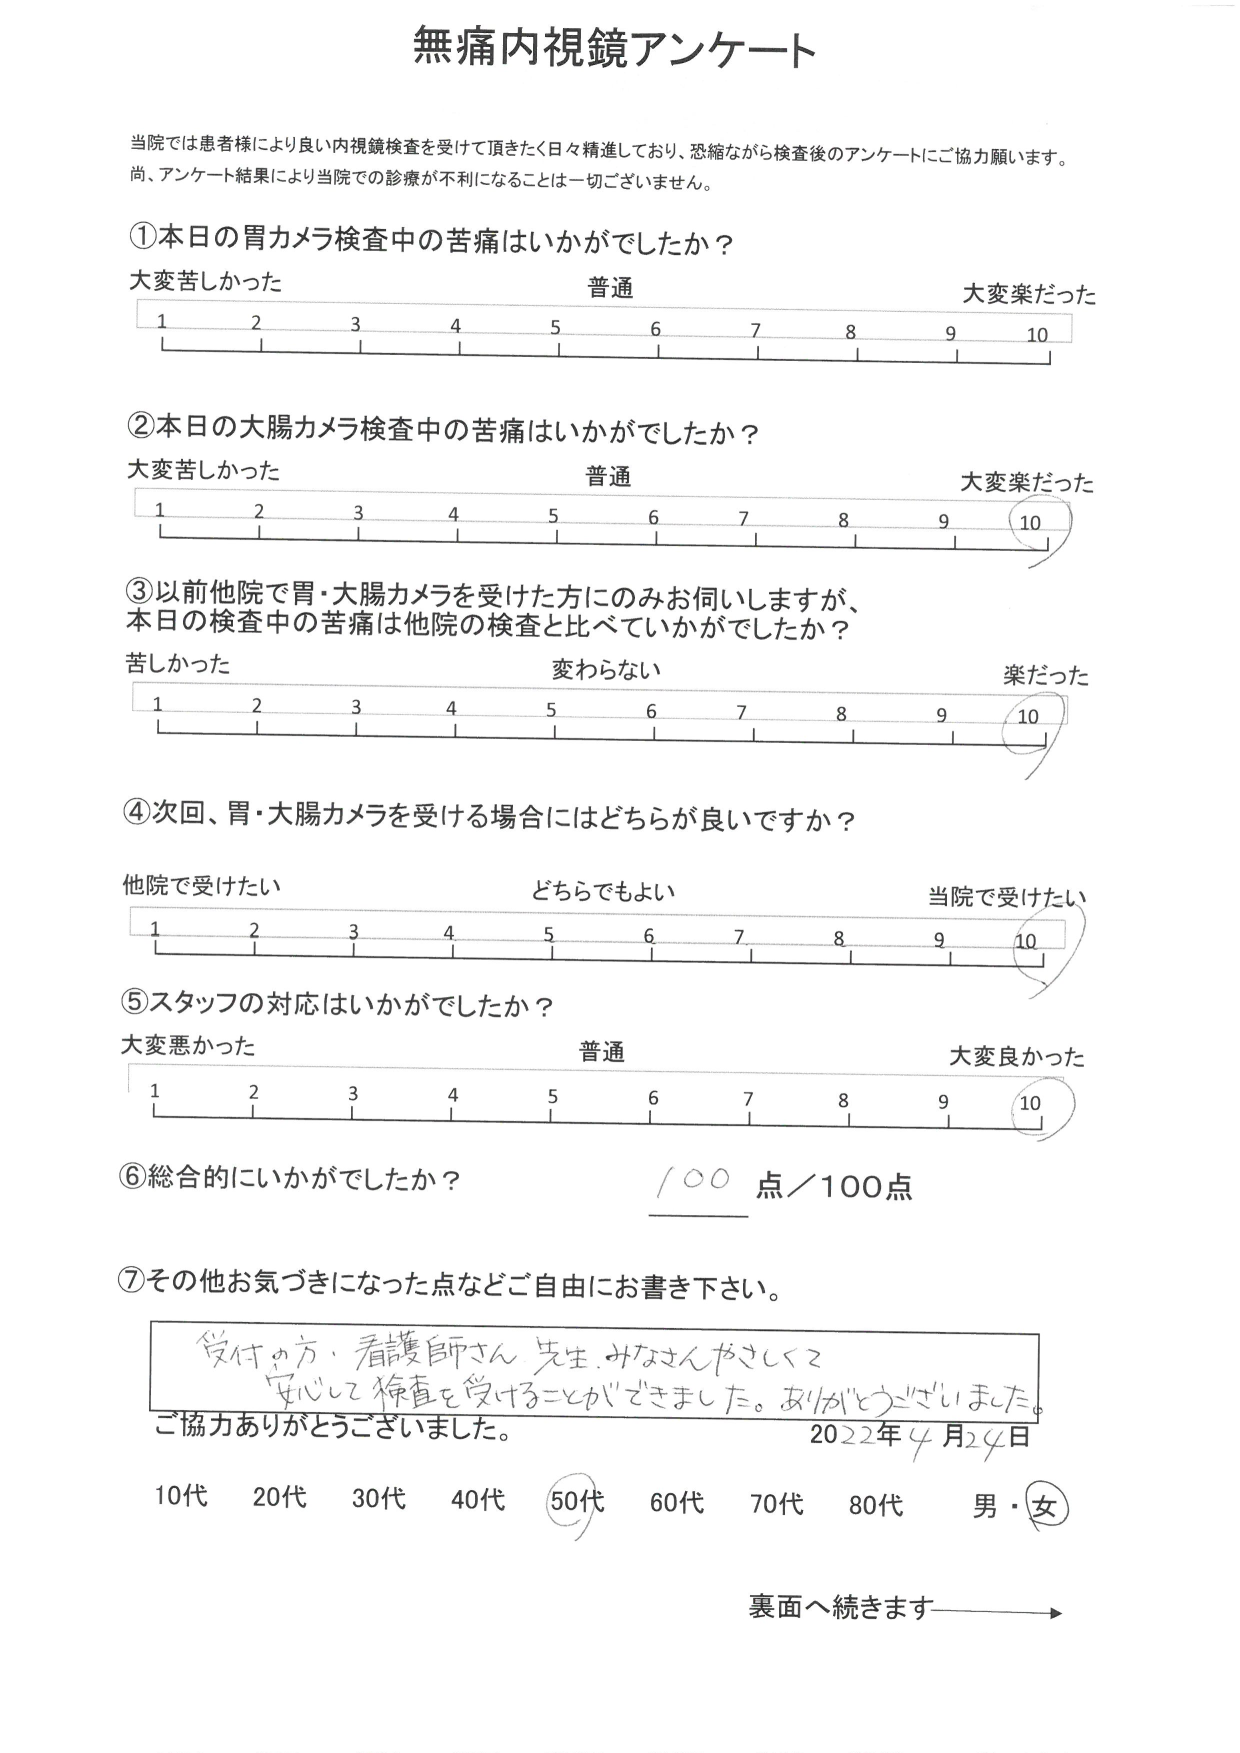 無痛内視鏡アンケート
当院では患者様により良い内視鏡検査を受けて頂きたく日々精進しており、恐縮ながら検査後のアンケートにご協力願います。
尚、アンケート結果により当院での診療が不利になることは一切ございません。
①本日の胃カメラ検査中の苦痛はいかがでしたか？
大変苦しかった 普通 大変楽だった
1 2 3 4 5 6 7 8 9 10
②本日の大腸カメラ検査中の苦痛はいかがでしたか？
大変苦しかった 普通 大変楽だった
1 2 3 4 5 6 7 8 9 10
③以前他院で胃・大腸カメラを受けた方にのみお伺いしますが、
本日の検査中の苦痛は他院の検査と比べていかがでしたか？
苦しかった 変わらない 楽だった
1 2 3 4 5 6 7 8 9 10
④次回、胃・大腸カメラを受ける場合にはどちらが良いですか？
他院で受けたい どちらでもよい 当院で受けたい
1 2 3 4 5 6 7 8 9 10
⑤スタッフの対応はいかがでしたか？
大変悪かった 普通 大変良かった
1 2 3 4 5 6 7 8 9 10
⑥総合的にいかがでしたか？ 100 点／100点
⑦その他お気づきになった点などご自由にお書き下さい。
受付の方、看護師さん 先生、みなさんやさしくて
安心して検査を受けることができました。ありがとうございました。
ご協力ありがとうございました。 2022年4月24日
10代 20代 30代 40代 50代 60代 70代 80代 男・女
裏面へ続きます